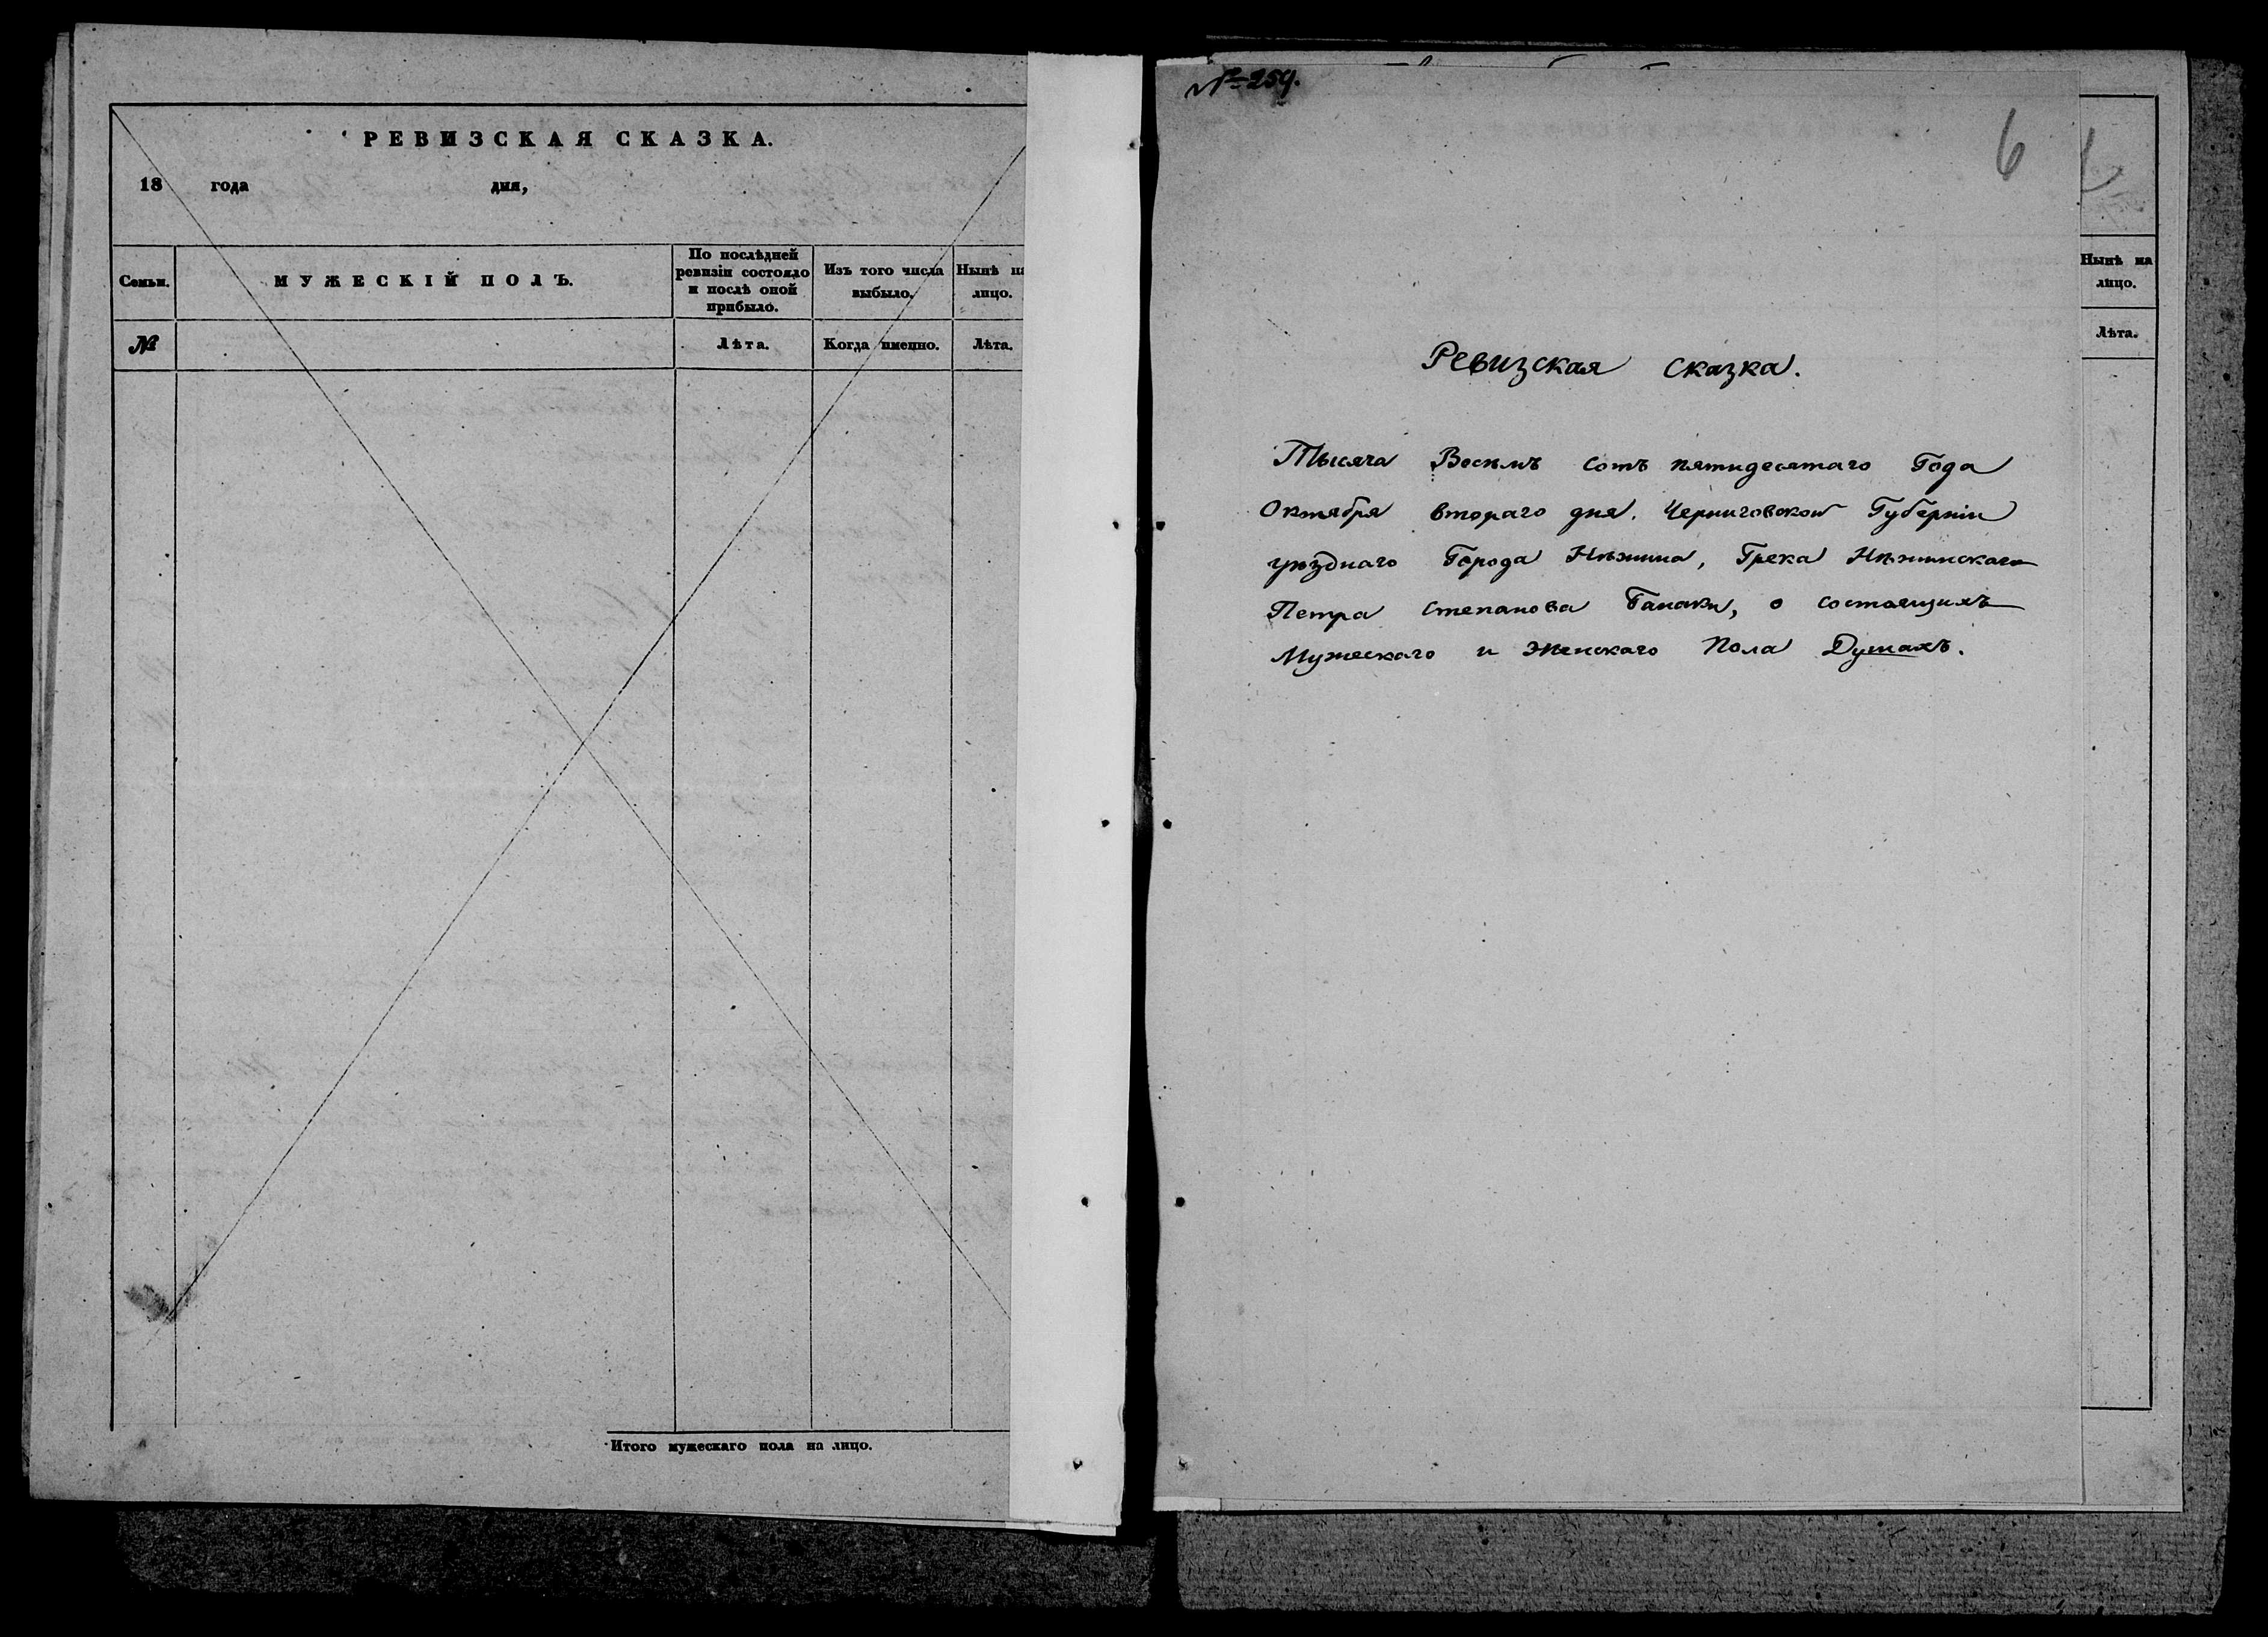 РЕВИЗСКАЯ СКАЗКА.
18 года дня,
Семьи.
МУЖЕСКІЙ ПОЛЪ.
По послѣдней
ревизіи состояло
и послѣ оной
прибыло.
Изъ того числа
выбыло.
Нынѣ на
лицо.
№
Лѣта.
Когда имепно.
Лѣта.
Итого мужескаго пола на лицо.
№ 259.
6
Ревизская сказка.
Тысяча Восемъ сотъ пятидесятаго Года
Октября втораго дня. Черниговской Губерніи
уѣзднаго Города Нѣжина, Грека Нѣжинскаго
Петра Степанова о состоящихъ
Мужескаго и женскаго Пола Душахъ.
Нынѣ на
лицо.
Лѣта.